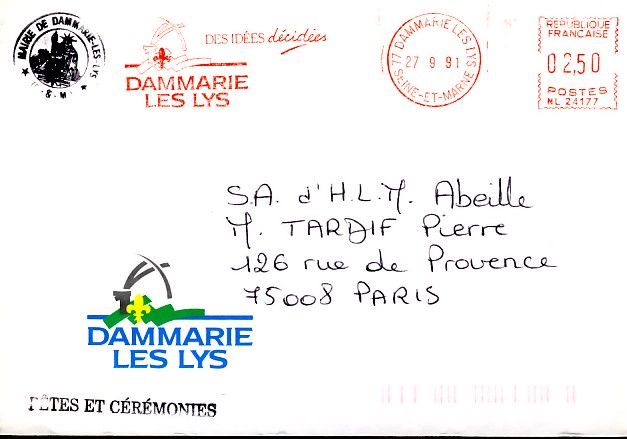 MAIRIE DE DAMMARIE-LES-LYS
DES IDÉES décidées
DAMMARIE
LES LYS
77 DAMMARIE LES LYS
27 9 91
SEINE-ET-MARNE
REPUBLIQUE
FRANCAISE
02,50
POSTES
NL 24177
S.A. d'H.L.M. Abeille
M. TARDIF Pierre
126 rue de Provence
75008 PARIS
DAMMARIE
LES LYS
FÊTES ET CÉRÉMONIES